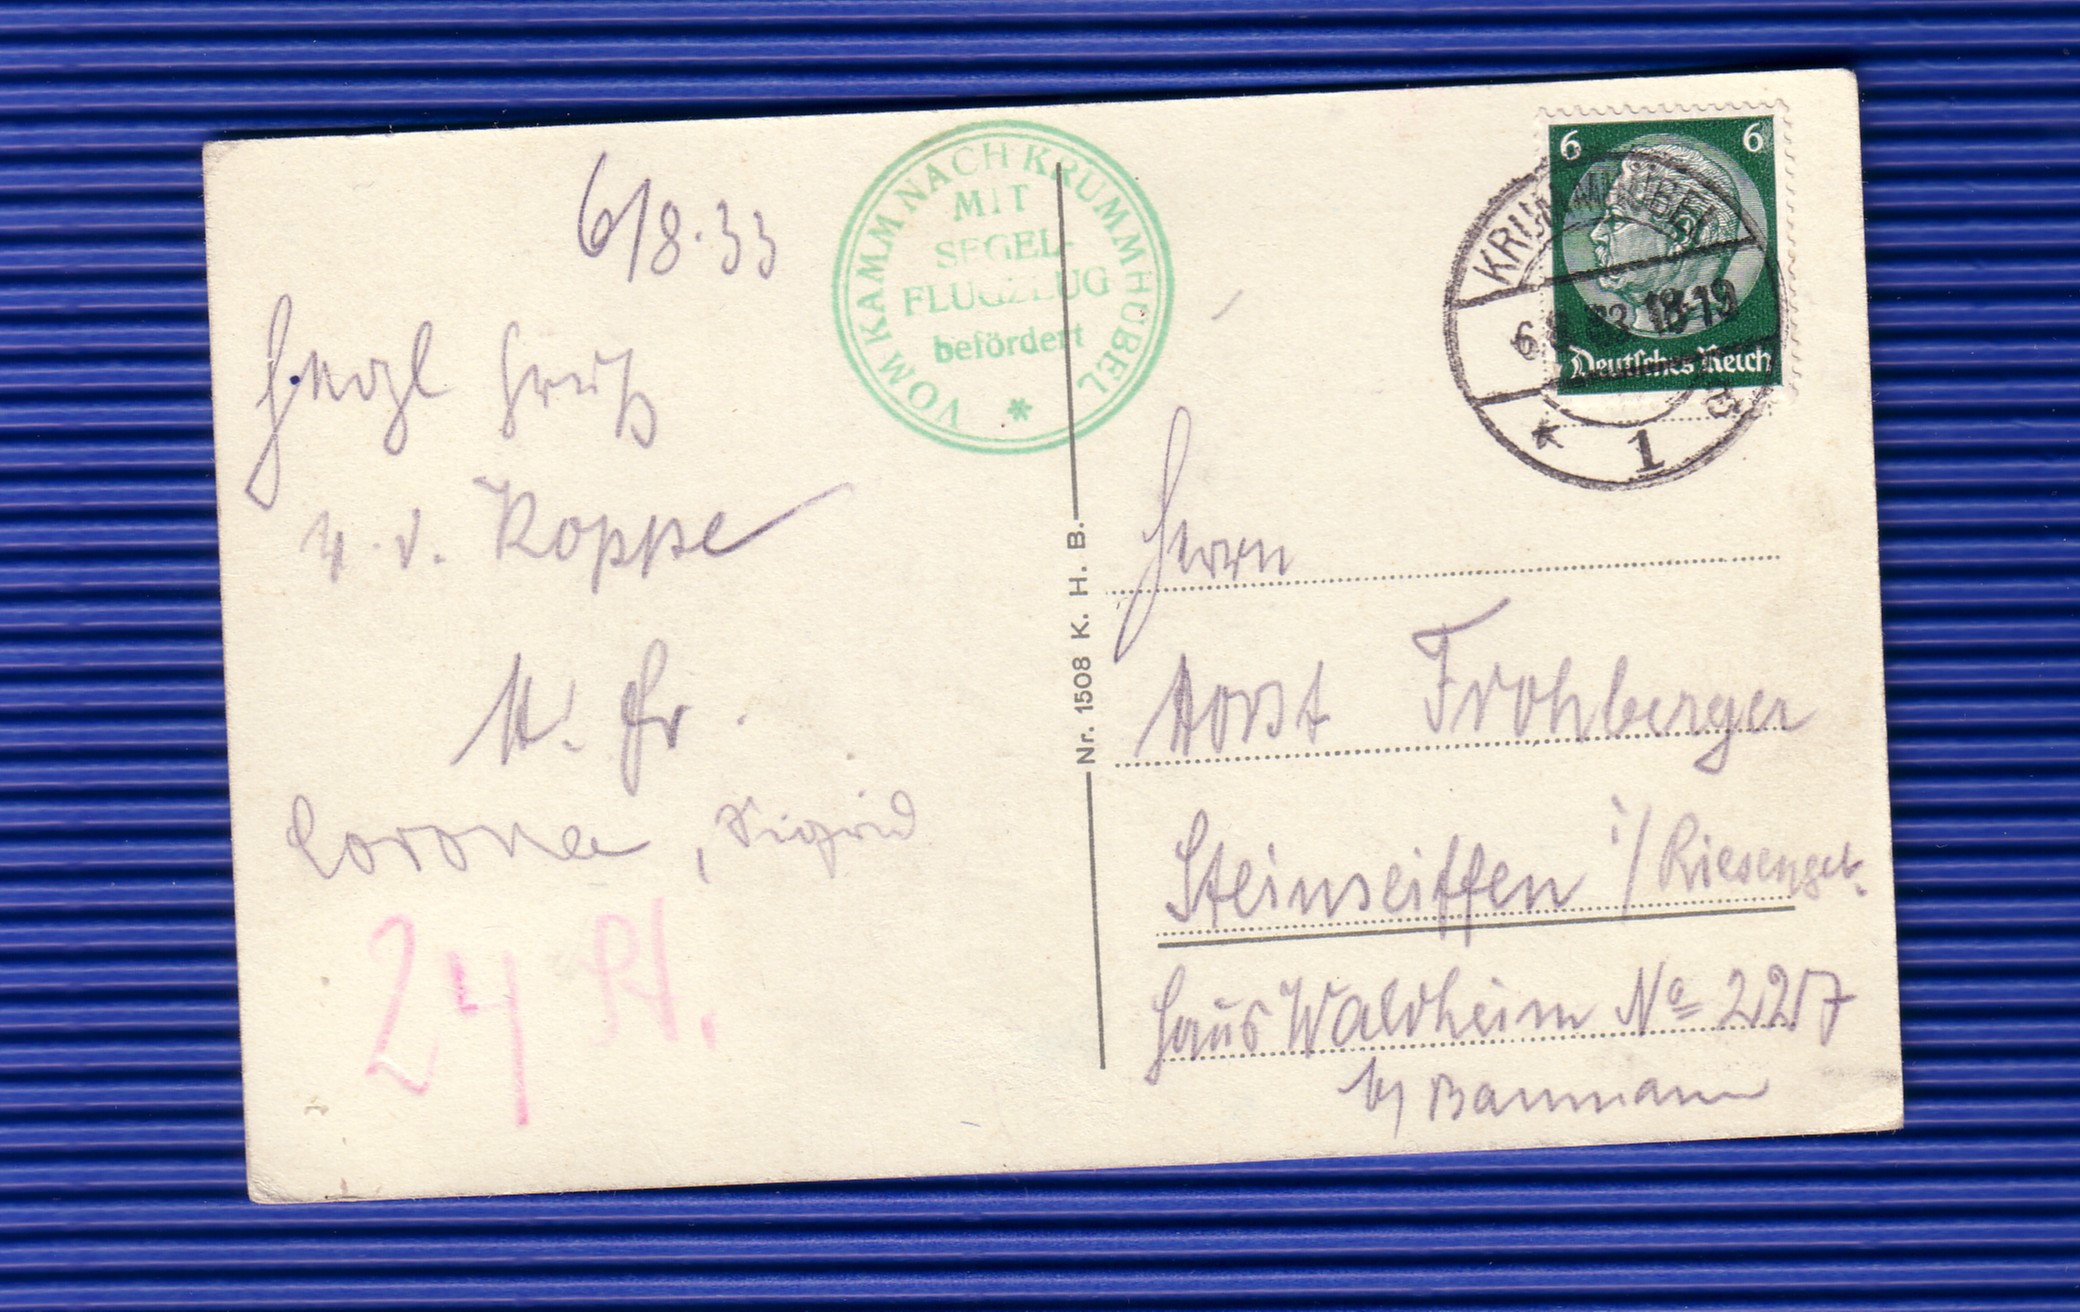 6/8.33
Herzl Gruß
v. d. Koppe
H. Fr.
Corona, Sigrid
24 St.
VOM KAMM NACH KRUMMHÜBEL
MIT
SEGEL-
FLUGZEUG
befördert
Nr. 1508 K. H. B.
6 6
Deutsches Reich
KRUMMHÜBEL
6.8.33 18-19
* 1
Herrn
Horst Frohberger
Steinseiffen i/Riesengeb.
Haus Waldheim No 227
b/ Baumann